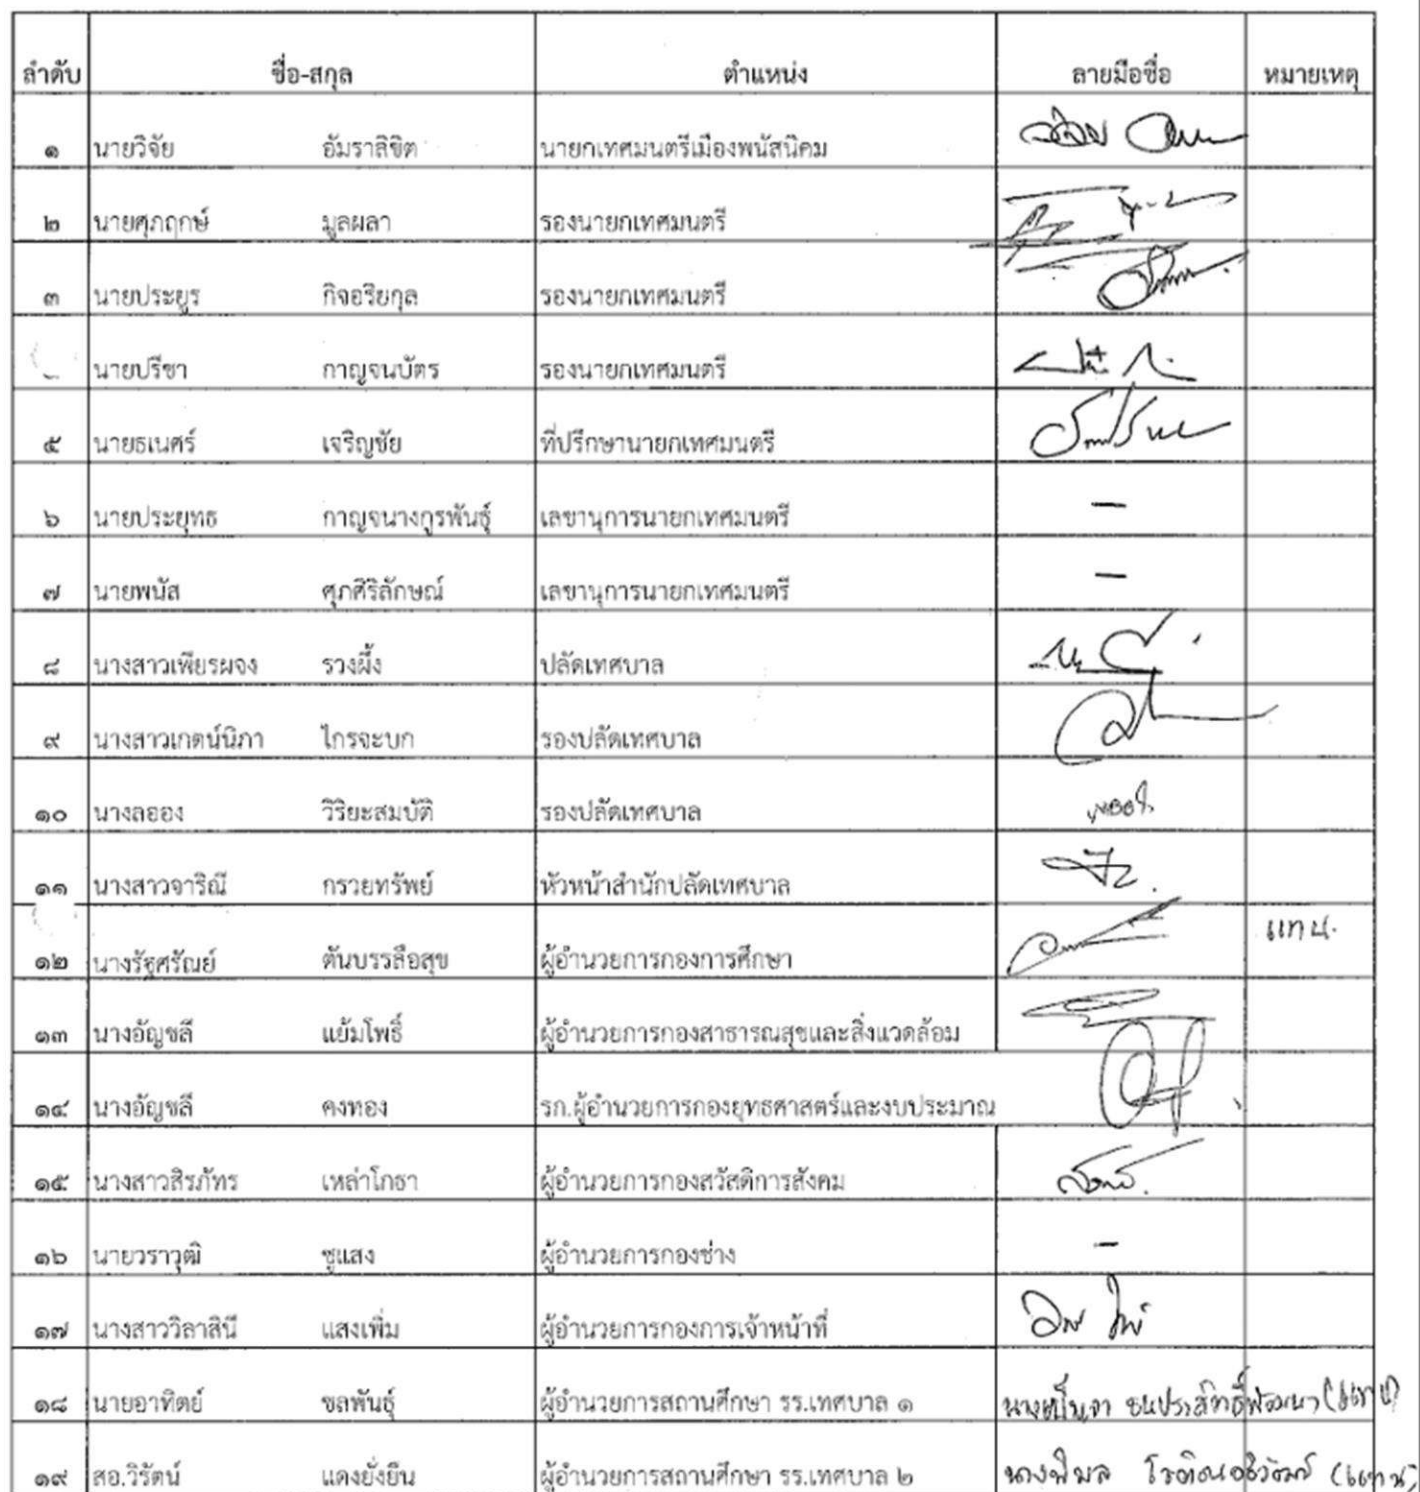 ลำดับ ชื่อ-สกุล ตำแหน่ง ลายมือชื่อ หมายเหตุ
๑ นายวิจัย อัมราลิขิต นายกเทศมนตรีเมืองพนัสนิคม
๒ นายศุภฤกษ์ มูลผลา รองนายกเทศมนตรี
๓ นายประยูร กิจอริยกุล รองนายกเทศมนตรี
นายปรีชา กาญจนบัตร รองนายกเทศมนตรี
๕ นายธเนศร์ เจริญชัย ที่ปรึกษานายกเทศมนตรี
๖ นายประยุทธ กาญจนางกูรพันธุ์ เลขานุการนายกเทศมนตรี –
๗ นายพนัส ศุภศิริลักษณ์ เลขานุการนายกเทศมนตรี –
๘ นางสาวเพียรผจง รวงผึ้ง ปลัดเทศบาล
๙ นางสาวเกตน์นิภา ไกรจะบก รองปลัดเทศบาล
๑๐ นางลออง วิริยะสมบัติ รองปลัดเทศบาล
๑๑ นางสาวจาริณี กรวยทรัพย์ หัวหน้าสำนักปลัดเทศบาล
๑๒ นางรัฐศรัณย์ ตันบรรลือสุข ผู้อำนวยการกองการศึกษา แทน.
๑๓ นางอัญชลี แย้มโพธิ์ ผู้อำนวยการกองสาธารณสุขและสิ่งแวดล้อม
๑๔ นางอัญชลี คงทอง รก.ผู้อำนวยการกองยุทธศาสตร์และงบประมาณ
๑๕ นางสาวสิรภัทร เหล่าโกธา ผู้อำนวยการกองสวัสดิการสังคม
๑๖ นายวราวุฒิ ชูแสง ผู้อำนวยการกองช่าง –
๑๗ นางสาววิลาสินี แสงเพิ่ม ผู้อำนวยการกองการเจ้าหน้าที่
๑๘ นายอาทิตย์ ชลพันธุ์ ผู้อำนวยการสถานศึกษา รร.เทศบาล ๑ (แทน)
๑๙ สอ.วิรัตน์ แดงยั่งยืน ผู้อำนวยการสถานศึกษา รร.เทศบาล ๒ นางพิมล (แทน)